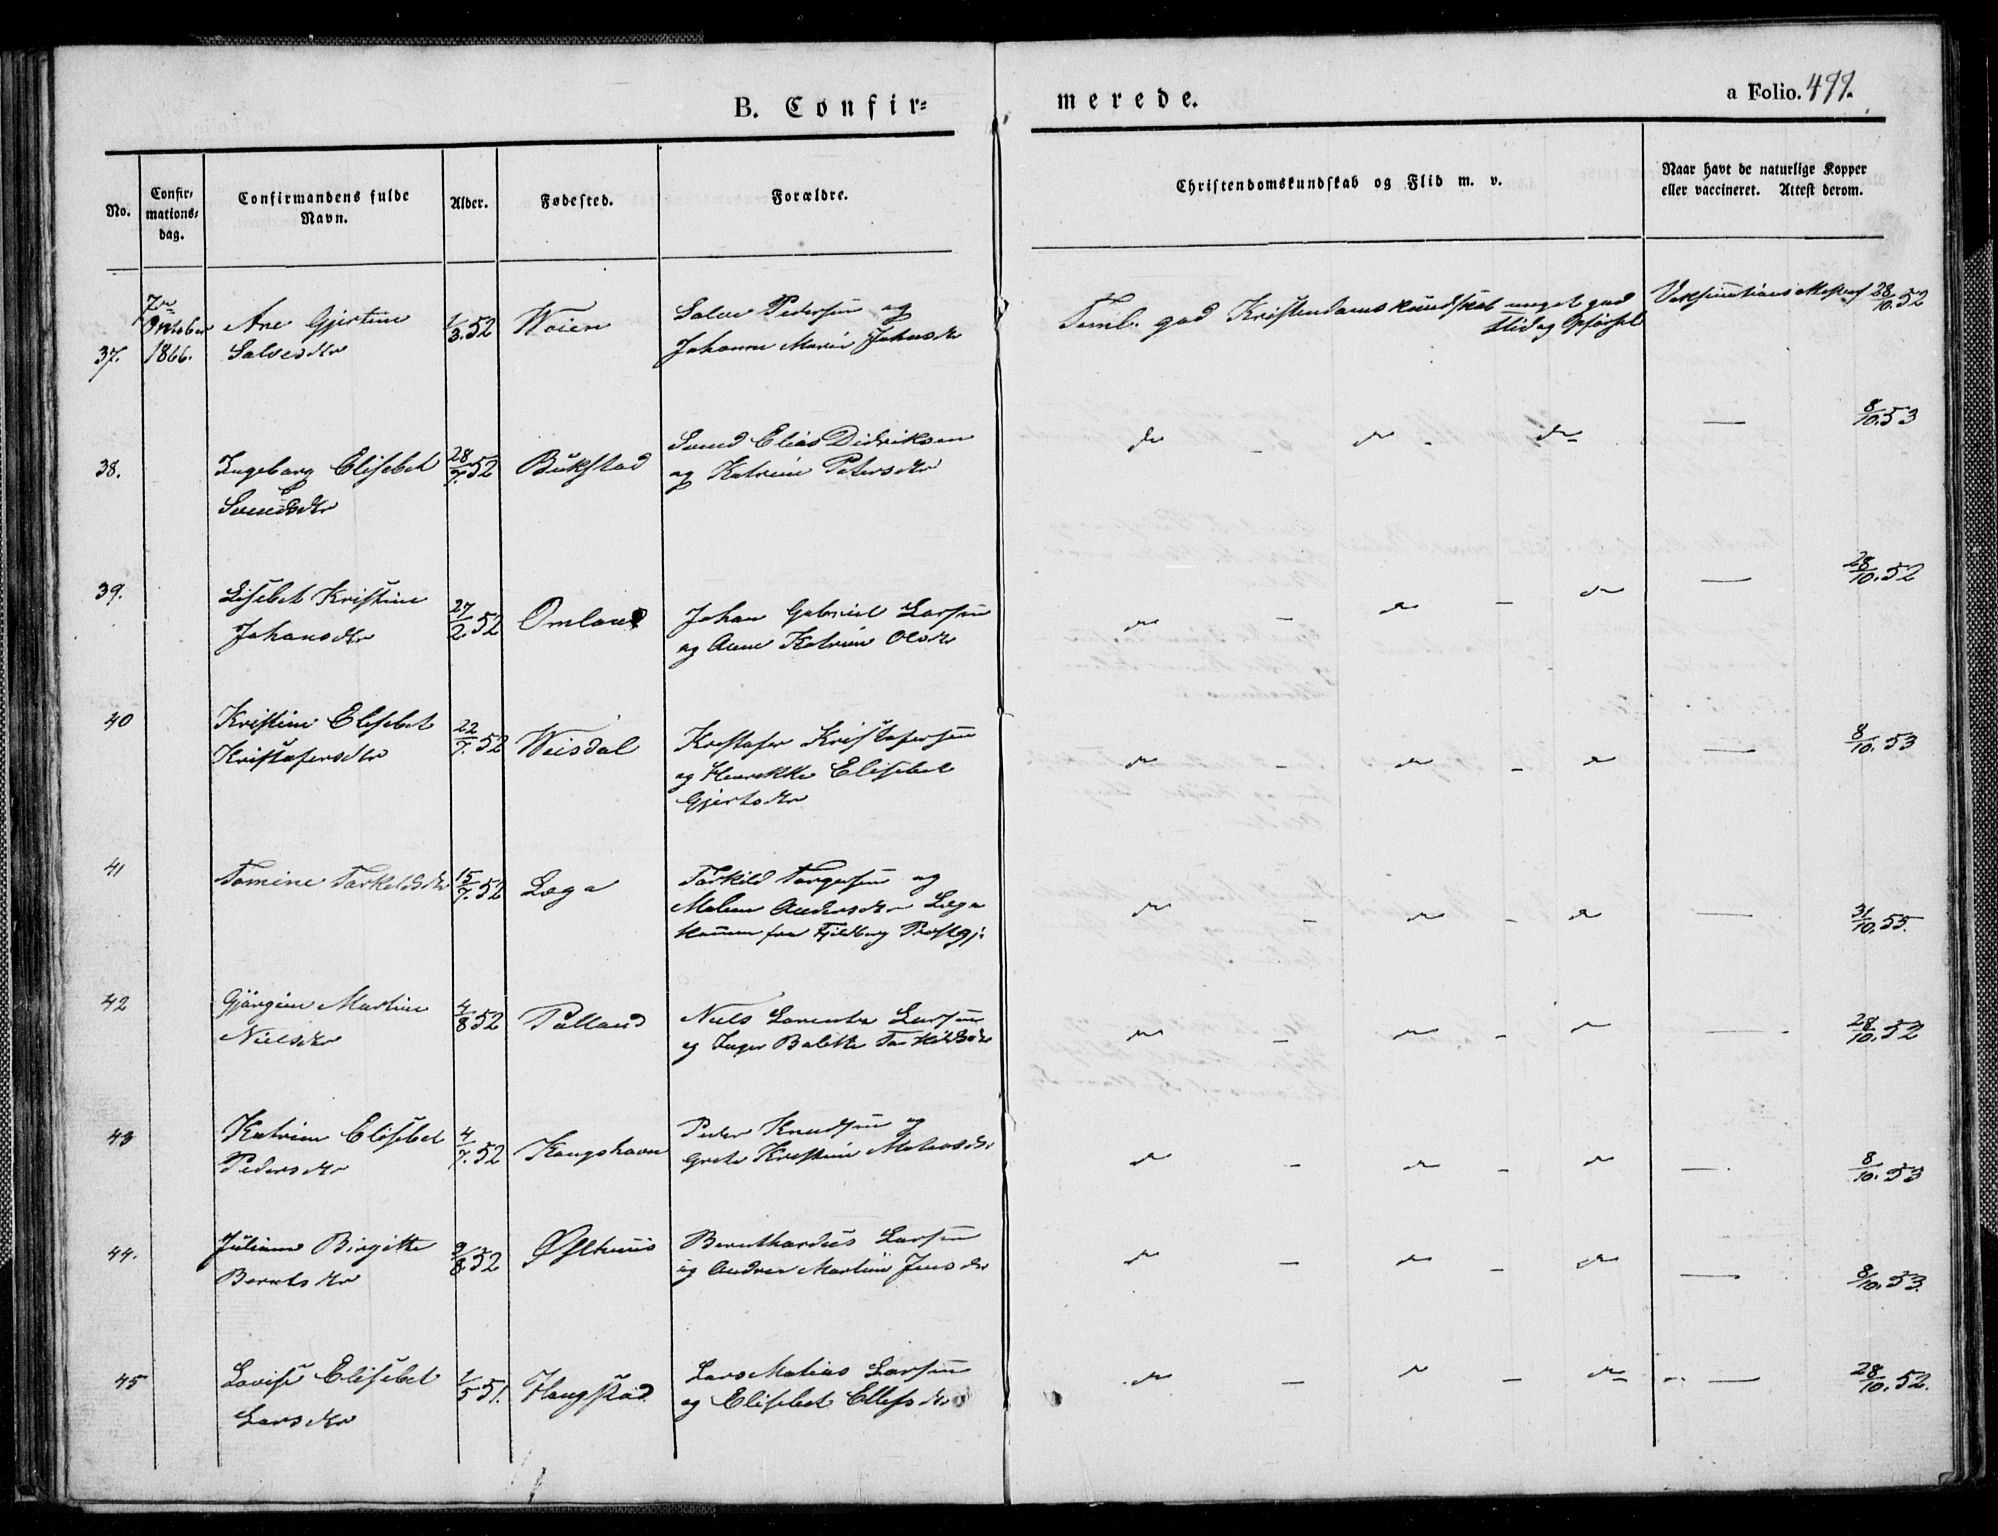 B. Confir=
merede.
a Folio. 499.
No.
Confir-
mations-
dag.
Confirmandens fulde
Navn.
Alder.
Fødested.
Forældre.
Christendomskundskab og Flid m. v.
Naar havt de naturlige Kopper
eller vaccineret. Attest derom.
37.
7de
Oktober
1866.
Ane Gjertine
Salvesdtr
1/3.52
Woien
Salve Pedersen og
Johanne Marie Johnsdtr
Teml. god Kristendomskundskab meget god
Flid og Opførsel
Vaksinations Attest af 28/10.52
38.
Ingeborg Elisebet
Svendsdtr
28/7.52
Bukstad
Svend Elias Didriksen
og Katrine Petersdtr
do - do - do
— 8/10.53
39.
Lisebet Kristine
Johansdtr
27/2.52
Omland
Johan Gabriel Larsen
og Anne Katrine Olsdtr
do - do - do
— 28/10.52
40
Kristine Elisebet
Kristofersdtr
22/7.52
Weisdal
Kristofer Kristofersen
og Henrikke Elisebet
Gjertsdtr
do - do - do
— 8/10.53
41
Tomine Torkeldsdtr
15/7.52
Lega
Torkild Torgersen og
Malene Andersdtr Lega
kommen fra Fjeldberg Prestgj.
do - do - do
— 31/10.55.
42
Gjørgine Martine
Nielsdtr
4/8.52
Tolland
Niels Lorents Larsen
og Inger Balette Torkildsdtr
do - do - do
— 28/10.52
43
Katrine Elisebet
Pedersdtr
4/7.52
Kongshavn
Peder Knudsen og
Grete Kristine Mateasdtr
do - do - do
— 8/10.53
44.
Juliane Birgitte
Berntsdtr
9/8.52
Østhuus
Bernthardus Larsen
og Andrea Martine Jensdtr
do - do - do
— 8/10.53.
45
Lovise Elisebet
Larsdtr
1/5 51.
Haugstad
Lars Matias Larsen
og Elisebet Ellefsdtr
do - do - do
— 28/10.52.